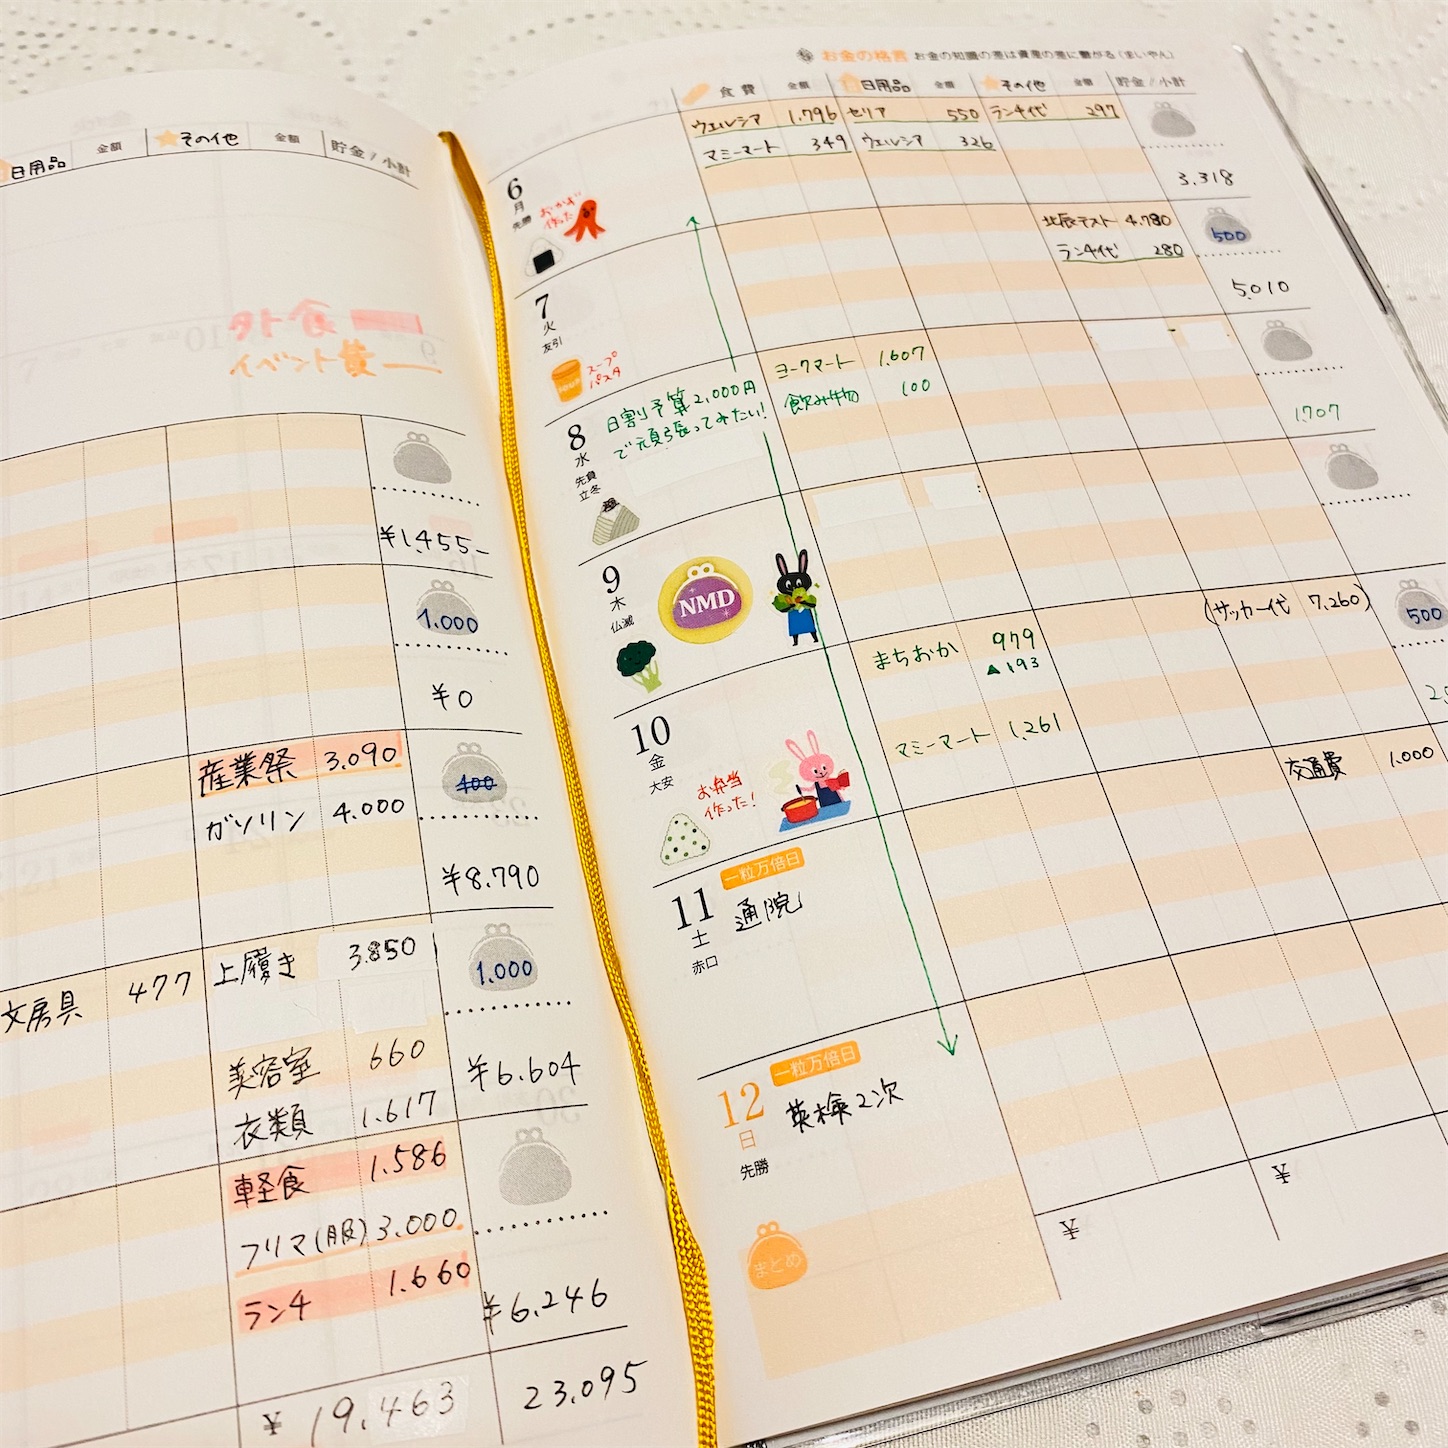 日用品 金額 その他 金額 貯金/小計
外食
イベント費
¥1,455-
1,000
¥0
産業祭 3,090
400
ガソリン 4,000
¥8,790
文房具 477 上履き 3,850
1,000
美容室 660
¥6,604
衣類 1,617
軽食 1,586
フリマ(服) 3,000
ランチ 1,660
¥6,246
¥ 19,463
23,095
お金の格言 お金の知識の差は資産の差に繋がる(まいやん)
食費 金額 日用品 金額 その他 金額 貯金/小計
6
月
先勝
おかず
作った
ウエルシア 1,796 セリア 550 ランチ代 297
マミーマート 349 ウエルシア 326
3,318
7
火
友引
SOUP
スープ
パスタ
北辰テスト 4,780
500
ランチ代 280
5,010
8
水
先負
立冬
日割予算2,000円
で頑張ってみたい!
ヨークマート 1,607
飲み物 100
1,707
9
木
仏滅
NMD
10
金
大安
お弁当
作った!
まちおか 979
▲193
マミーマート 1,261
(サッカー代 7,260)
500
11
土
赤口
一粒万倍日
通院
交通費 1,000
12
日
先勝
一粒万倍日
英検2次
まとめ
¥
¥